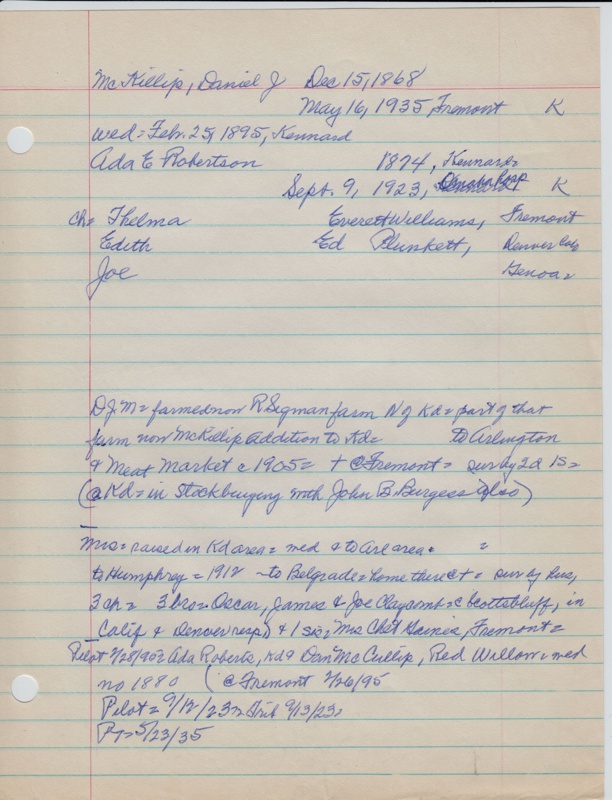 McKillip, Daniel J Dec 15, 1868
May 16, 1935, Fremont K
wed = Feb. 25, 1895, Kennard
Ada E Robertson 1874, Kennard =
Sept. 9, 1923, Omaha Hosp K
ch = Thelma Everett Williams, Fremont
Edith Ed Plunkett, Denver Colo
Joe Genoa =
DJM = farmed now R Segman farm N of Kd = part of that
farm now McKillip Addition to Kd = to Arlington
& Meat Market c 1905 = + @ Fremont = sur by 2d 1s =
(@ Kd = in Stockbuying with John B. Burgess also)
Mrs = raised in Kd area = wed & to Arl area =
to Humphrey = 1912 - to Belgrade = home there et + = sur by hus,
3 ch = 3 bro = Oscar, James & Joe Claycomb = (Scottsbluff, in
Calif & Denver resp) & 1 sis = Mrs Chet Gaines, Fremont =
Pilot 2/28/95 = Ada Roberts, Kd & Dan McCullip, Red Willow = wed
no 1880 (@ Fremont 2/26/95
Pilot = 9/12/23 = Trib 9/13/23 =
5/23/35